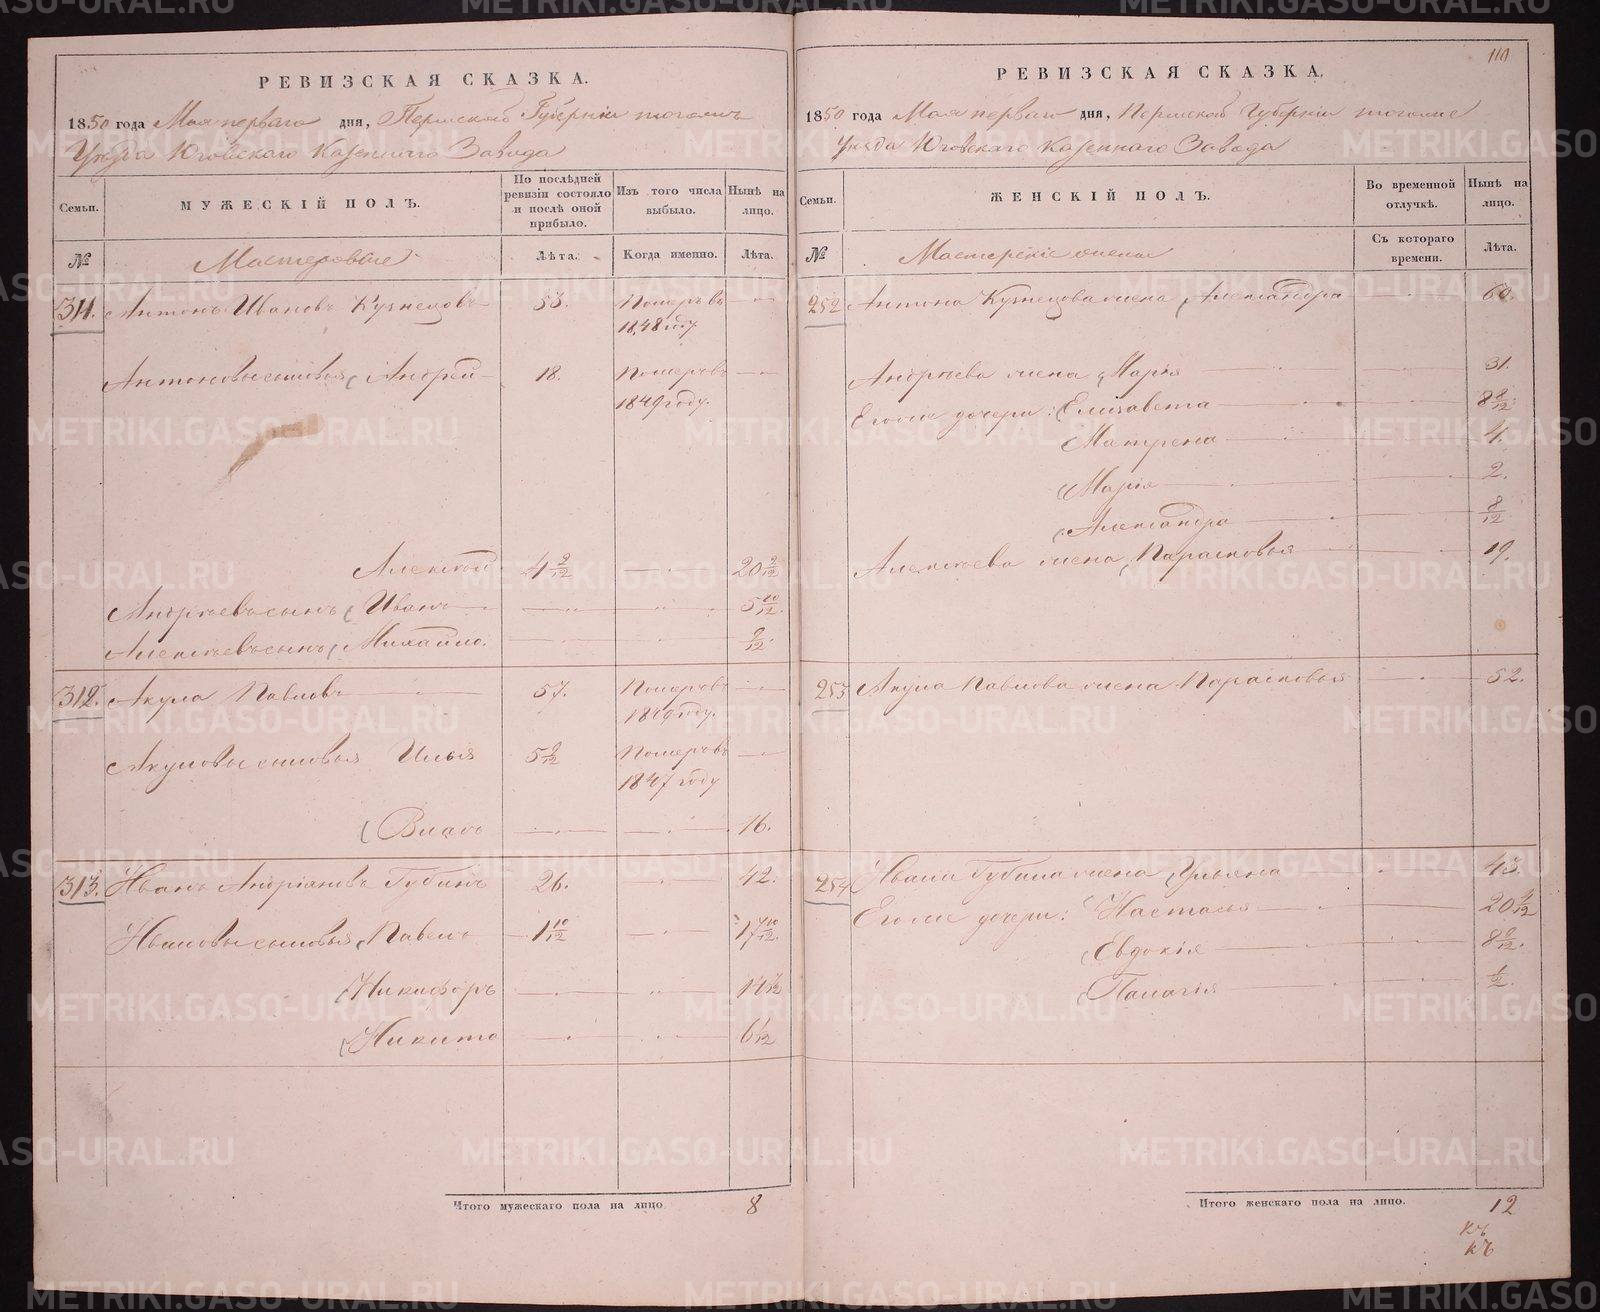 РЕВИЗСКАЯ СКАЗКА.
1850 года Мая перваго дня, Пермской Губерніи тогожъ
Уѣзда Юговскаго Казеннаго Завода
Семьи.
МУЖЕСКІЙ ПОЛЪ.
По послѣдней ревизіи состояло и послѣ оной прибыло.
Изъ того числа выбыло.
Нынѣ на лицо.
№ Мастеровые Лѣта. Когда именно. Лѣта.
311. Антонъ Ивановъ Кузнецовъ 53. Померъ въ
1848 году.
Антоновы сыновья Андрей 18. Померъ въ
1849 году.
Алексѣй 4 9/12 20 2/12
Андреевъ сынъ Иванъ 5 10/12
Алексѣевъ сынъ Михайло. 9/12
312. Акула Павловъ 57. Померъ въ
1849 году.
Акуловы сыновья Илья 5 9/12 Померъ въ
1847 году
Власъ 16.
313. Иванъ Андріановъ Губинъ 26. 42.
Ивановы сыновья Павелъ 1 10/12 17 10/12
Никифоръ
Никита 6 1/12
Итого мужескаго пола на лицо 8
110
РЕВИЗСКАЯ СКАЗКА.
1850 года Мая перваго дня, Пермской Губерніи тогоже
Уѣзда Юговскаго Казеннаго Завода
Семьи.
ЖЕНСКІЙ ПОЛЪ.
Во временной отлучкѣ.
Нынѣ на лицо.
№ Мастерскіе жены Съ котораго времени. Лѣта.
252 Антона Кузнецова жена Александра 60.
Андреева жена Марія 31.
Его же дочери: Елизавета 8 8/12
Матрена 4.
Марія 2.
Александра 8/12
Алексѣева жена Парасковья 19.
253 Акула Павлова жена Парасковья 52.
254 Ивана Губина жена Ульяна 43.
Его же дочери: Настасья 20 4/12
Евдокія 8 2/12
Палагія 1/2.
Итого женскаго пола на лицо. 12
METRIKI.GASO-URAL.RU